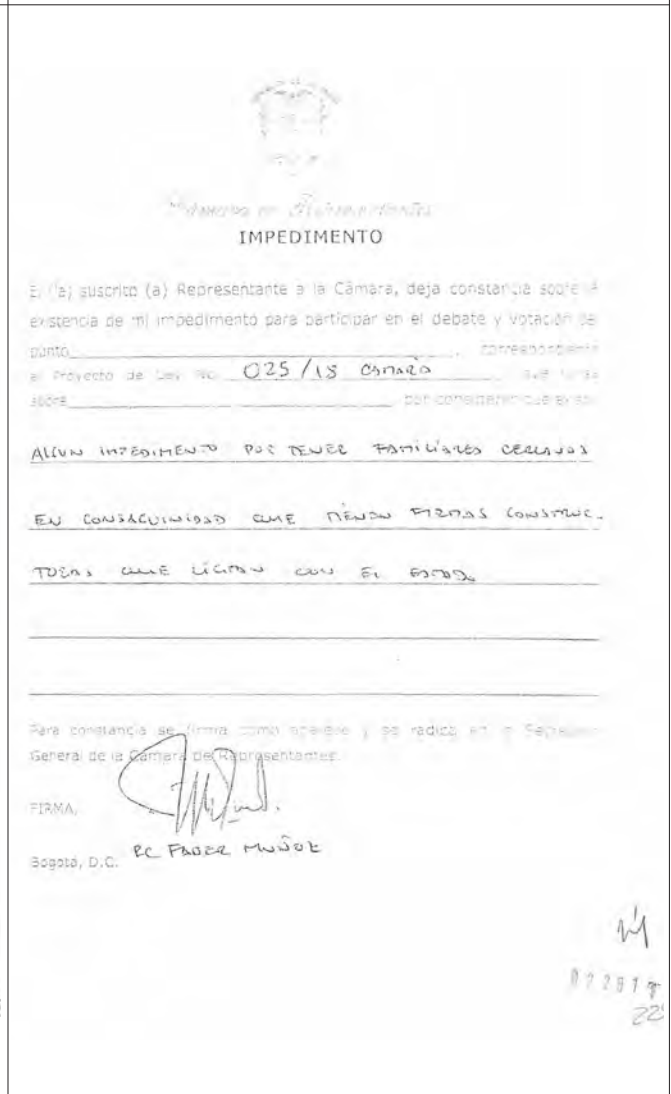 IMPEDIMENTO
El (a) suscrito (a) Representante a la Cámara, deja constancia sobre la
existencia de mi impedimento para participar en el debate y votación del
punto , correspondiente
al Proyecto de Ley No. 025/18 CAMARA que
sobre por considerar que existe
ALGUN IMPEDIMENTO POR TENER FAMILIARES CERCANOS
EN CONSAGUINIDAD QUE TIENEN FIRMAS CONSTRUC-
TORAS QUE LICITAN CON EL ESTADO
Para constancia se firma como aparece y se radica en la Secretaría
General de la Cámara de Representantes.
FIRMA,
RC FABER MUÑOZ
Bogotá, D.C.